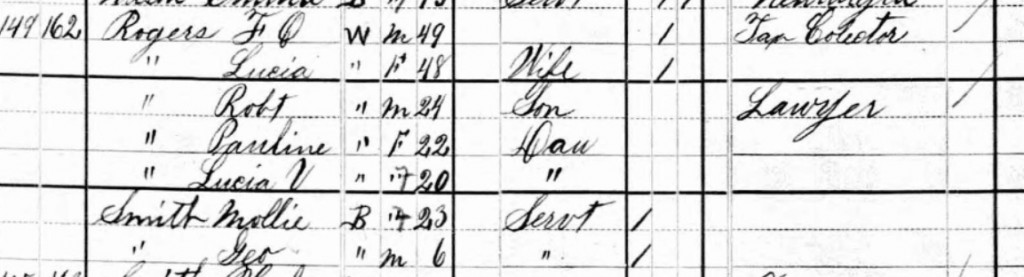 B Servt
149 162 Rogers F O W m 49 1 Tax Colector
" Lucia " F 48 Wife 1
" Robt " m 24 Son Lawyer
" Pauline " F 22 Dau
" Lucia V " F 20 "
Smith Mollie B F 23 Servt 1
" Geo " m 6 " 1